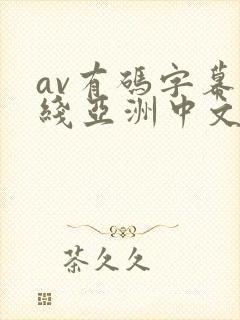 av有碼字幕
綫亞洲中文
茶久久